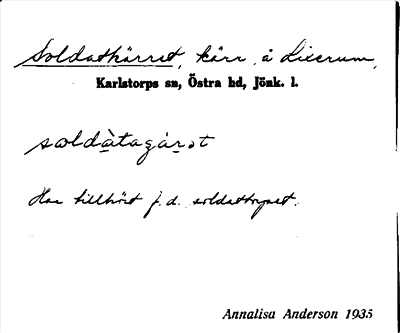 Soldatkärret, kärr, å Lixerum,
Karlstorps sn, Östra hd, Jönk. l.
Har tillhört f.d. soldattorpet.
Annalisa Anderson 1935